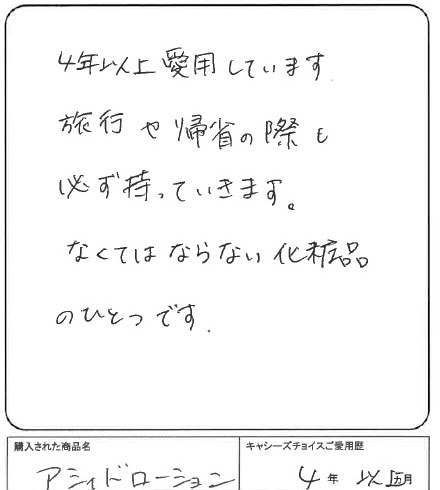 4年以上愛用しています.
旅行や帰省の際も
必ず持っていきます。
なくてはならない化粧品
のひとつです.
購入された商品名
キャシーズチョイスご愛用歴
アシィドローション
4年以上月